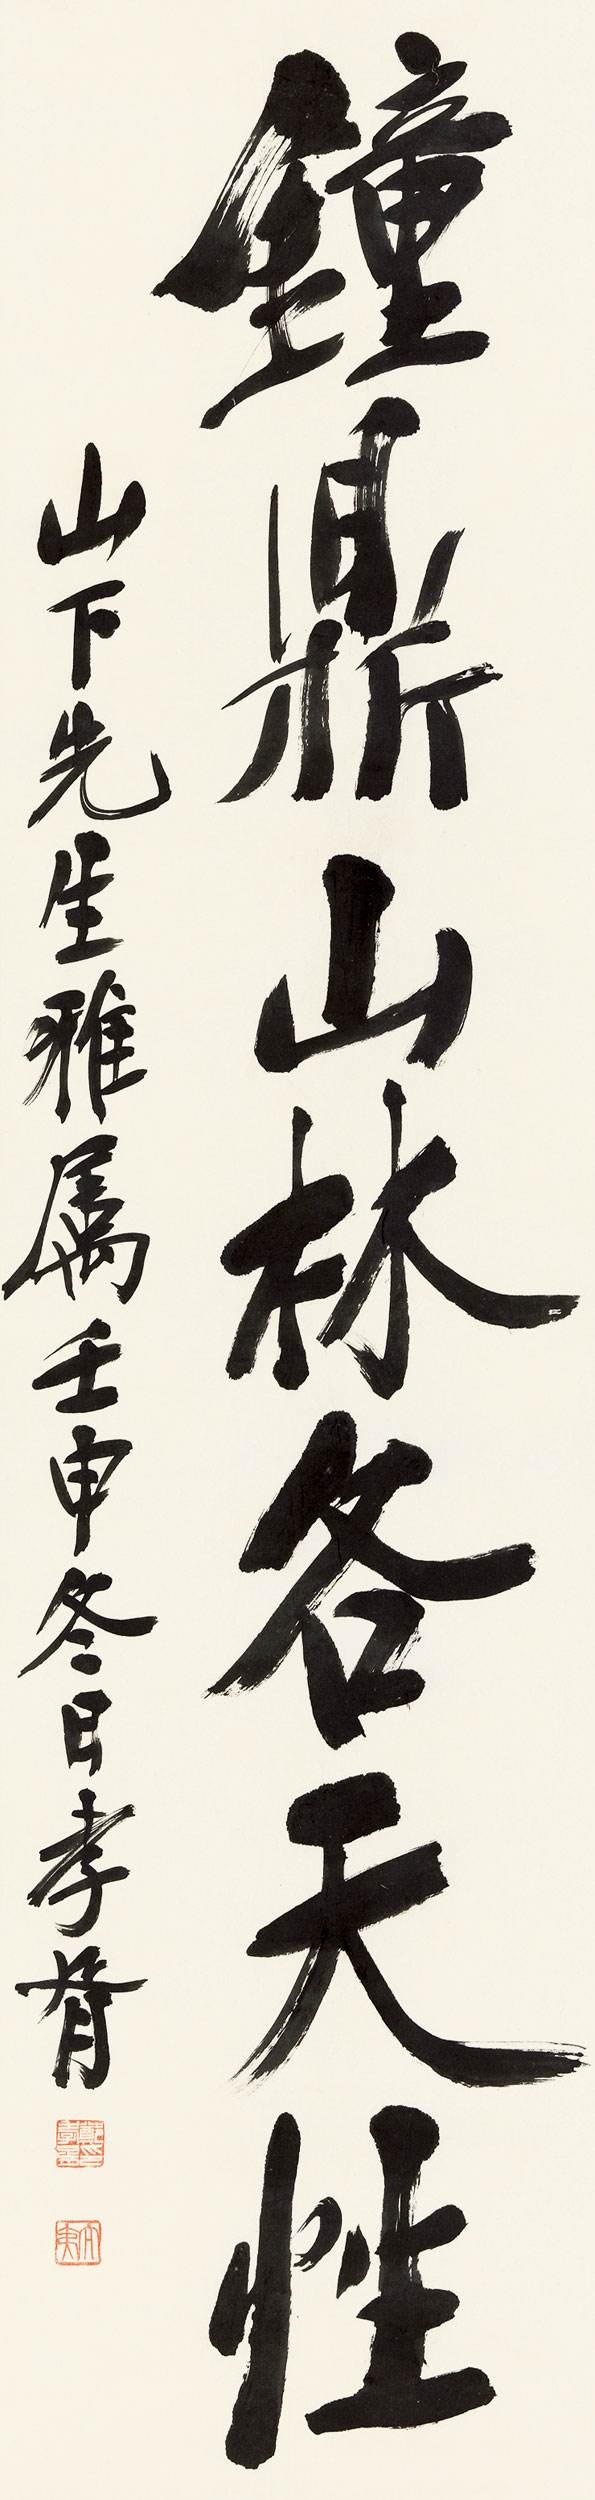 鐘鼎山林各天性
山下先生雅属壬申冬日孝胥